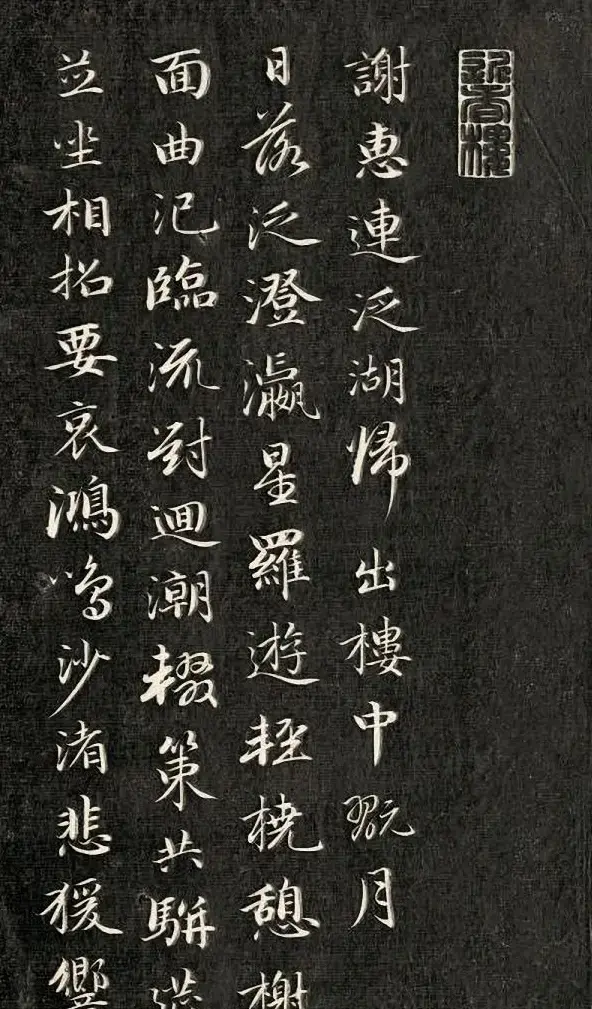 謝惠連泛湖帰出樓中翫月
日落泛澄瀛星羅遊輕橈憩榭
面曲汜臨流對迴潮輟策共駢筵
並坐相招要哀鴻鳴沙渚悲猨響